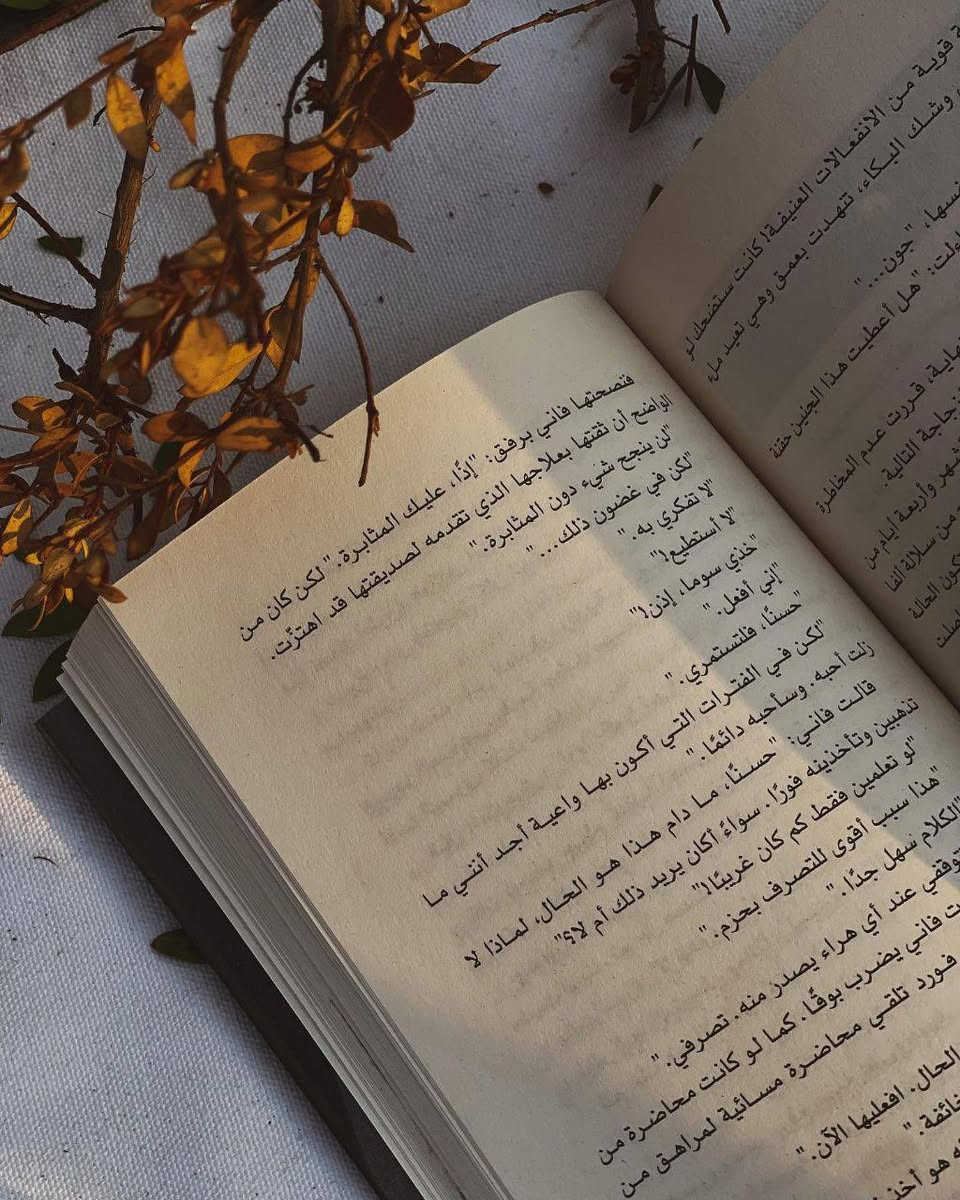 قوية من الانفعالات العنيفة! كانت ستضحك لو
وشك البكاء، تنهدت بعمق وهي تعيد ملء
"جون... "
"هل أعطيت هذا الجنين حقنة
قررت عدم المخاطرة
التالية.
وأربعة أيام من
من سلالة ألفا
الحالة
فنصحتها فاني برفق: "إذًا، عليك المثابرة." لكن كان من
الواضح أن ثقتها بعلاجها الذي تقدمه لصديقتها قد اهتزَّت.
"لن ينجح شيء دون المثابرة."
"لكن في غضون ذلك... "
"لا تفكري به. "
"لا أستطيع!"
"خذي سوما، إذن!"
"إني أفعل. "
"حسنًا، فلتستمري. "
"لكن في الفترات التي أكون بها واعية أجد أنني ما
زلت أحبه. وسأحبه دائمًا. "
قالت فاني: "حسنًا، ما دام هذا هو الحال، لماذا لا
تذهبين وتأخذينه فورًا. سواءً أكان يريد ذلك أم لا؟"
"لو تعلمين فقط كم كان غريبًا!"
"هذا سبب أقوى للتصرف بحزم. "
"الكلام سهل جدًا. "
عند أي هراء يصدر منه. تصرفي. "
فاني يضرب بوقًا. كما لو كانت محاضرة من
فورد تلقي محاضرة مسائية لمراهق من
الحال. افعليها الآن. "
خائفة. "
هو